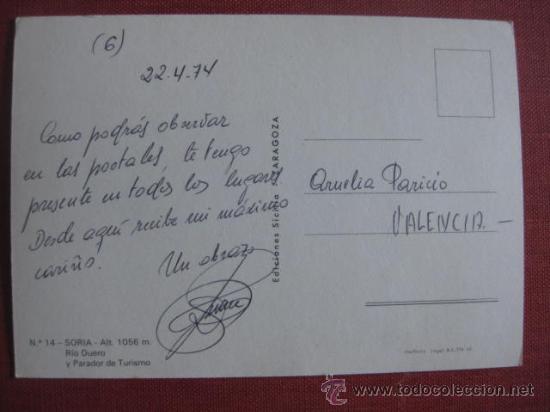 (6)
22.4.74
Como podrás observar
en las postales, te tengo
presente en todos los lugares.
Desde aquí recibe mi máximo
cariño.
Un abrazo
Ediciones Sicilia ZARAGOZA
Amelia Paricio
VALENCIA.-
N.º 14 - SORIA - Alt. 1056 m.
Río Duero
y Parador de Turismo
todocoleccion
www.todocoleccion.net